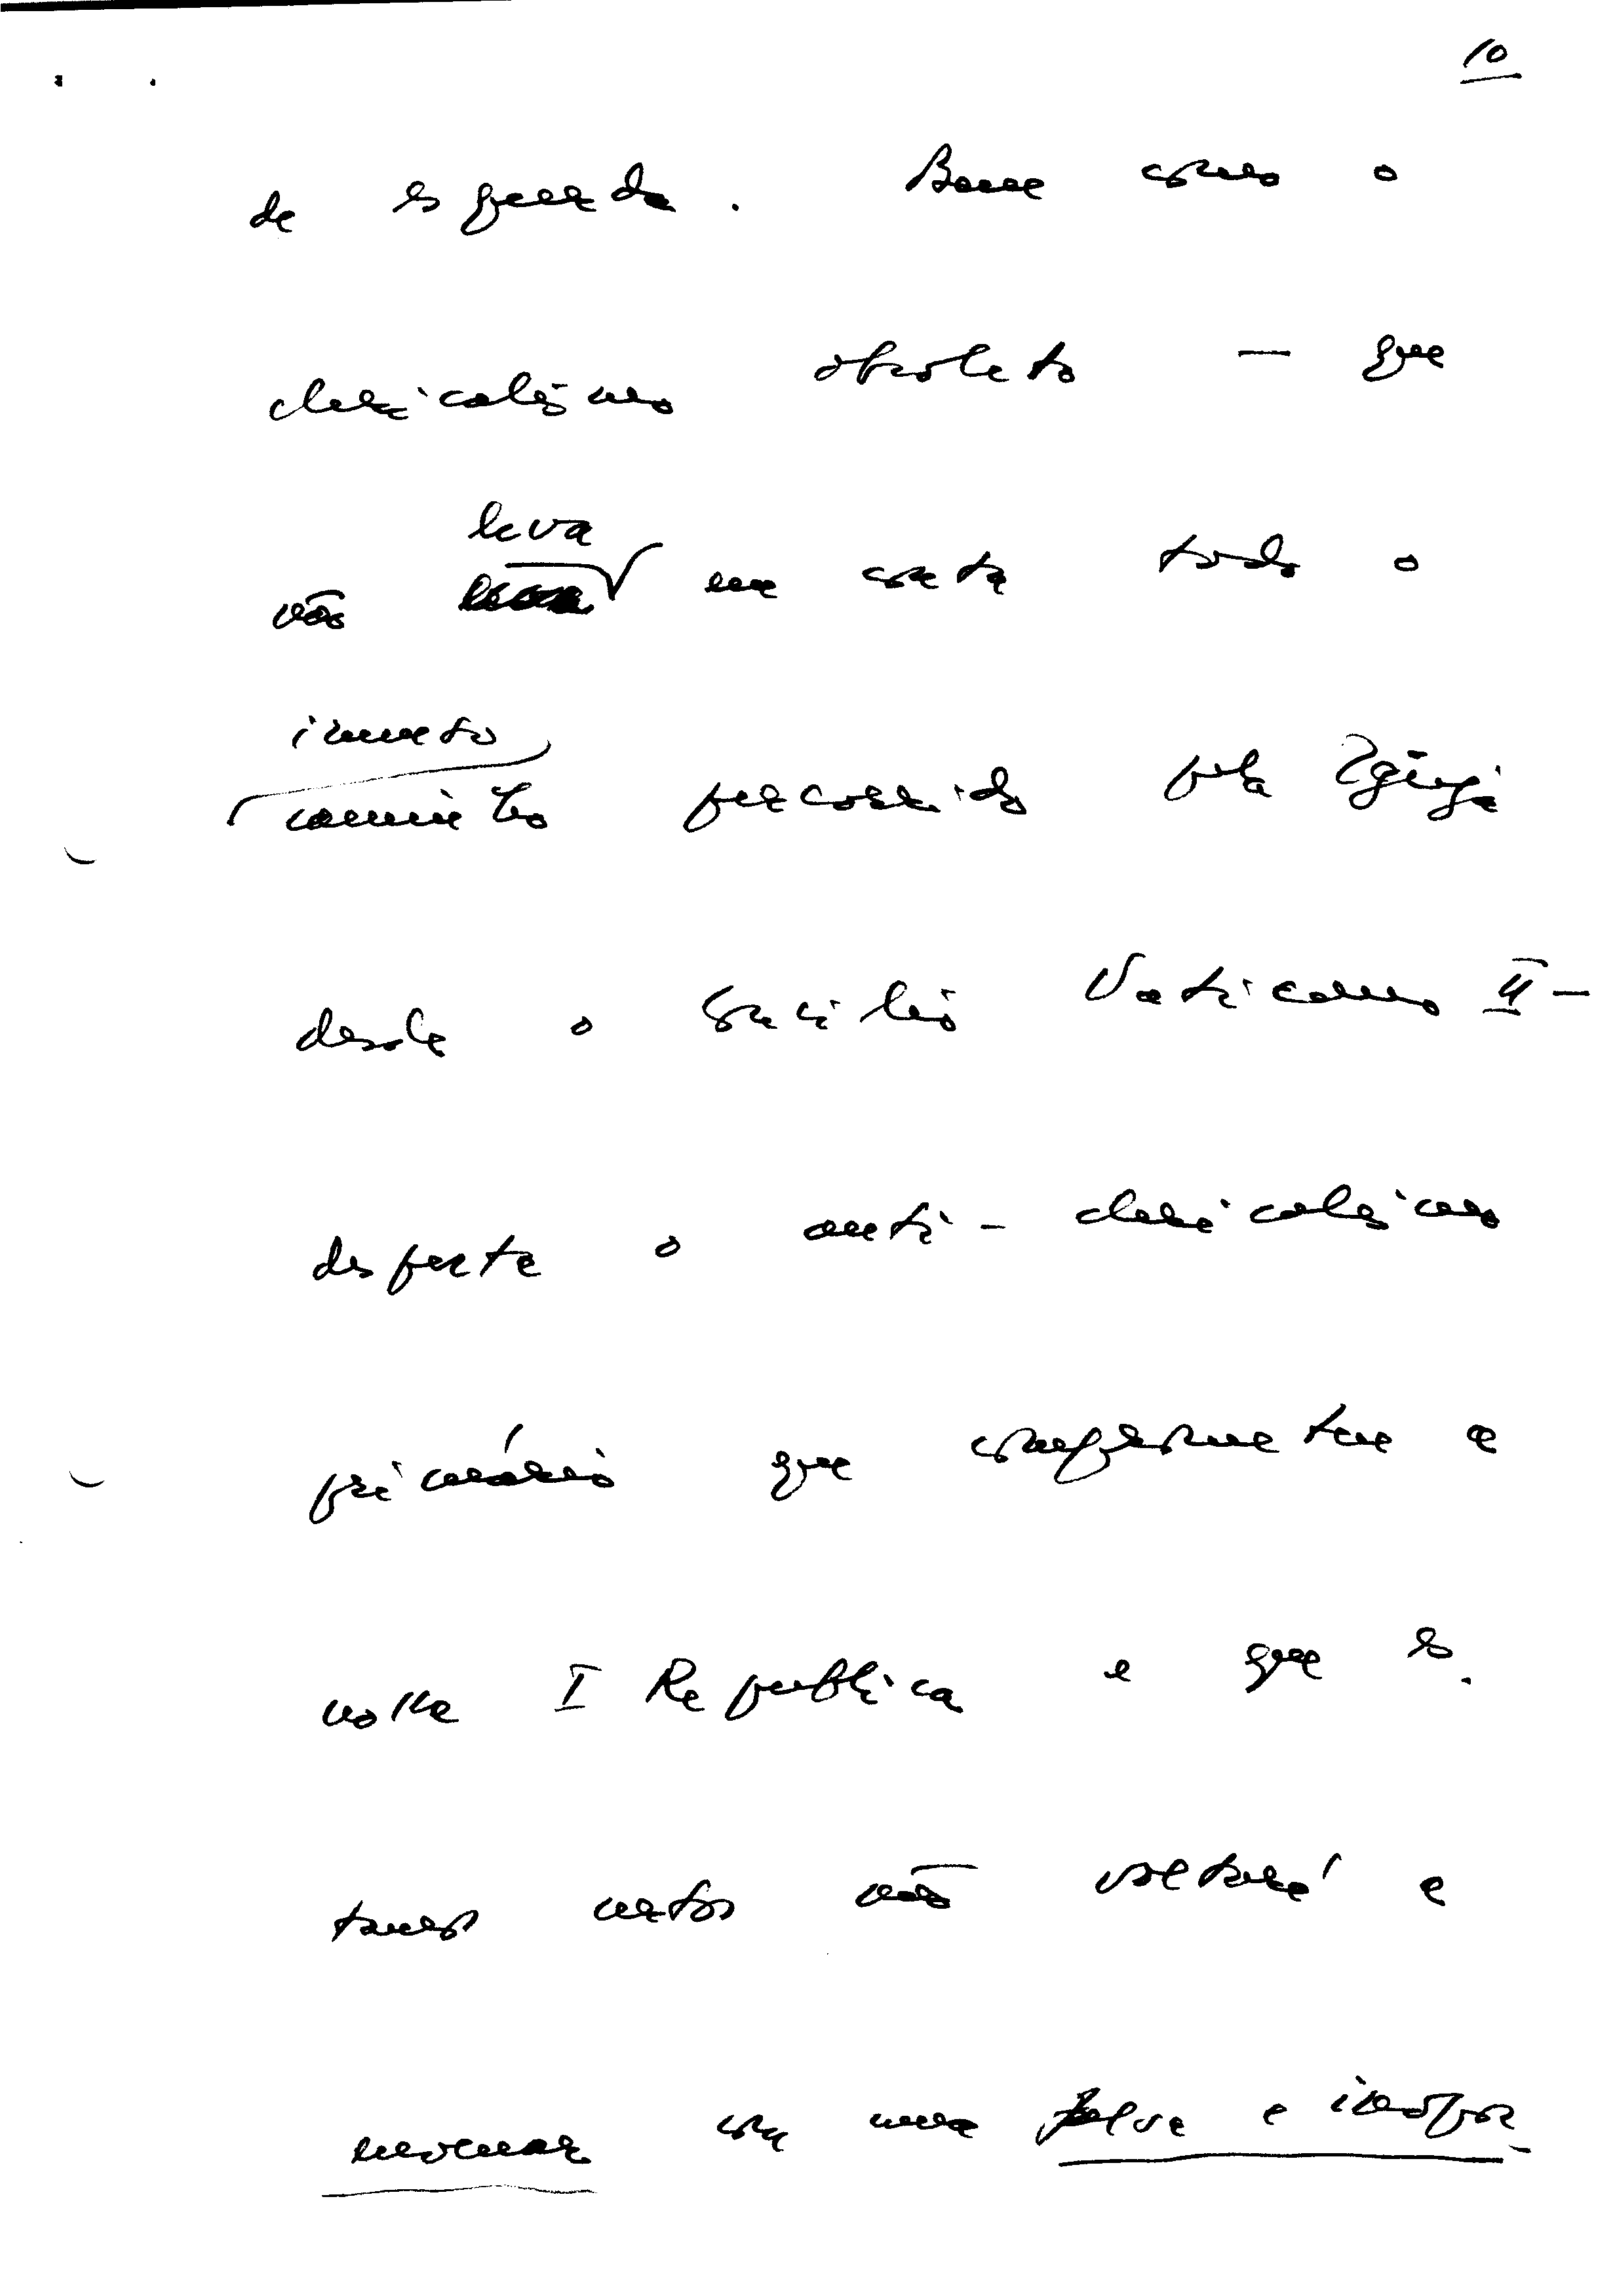 10
de esquerda. Bem como o
clericalismo obsoleto — que
não leva em conta todo o
imenso
caminho percorrido pela Igreja
desde o Concílio Vaticano II —
desperta o anti-clericalismo
primário que compromete a
nossa I Republica e que es.
tamos certos não voltará e
com uma falsa e inopor-